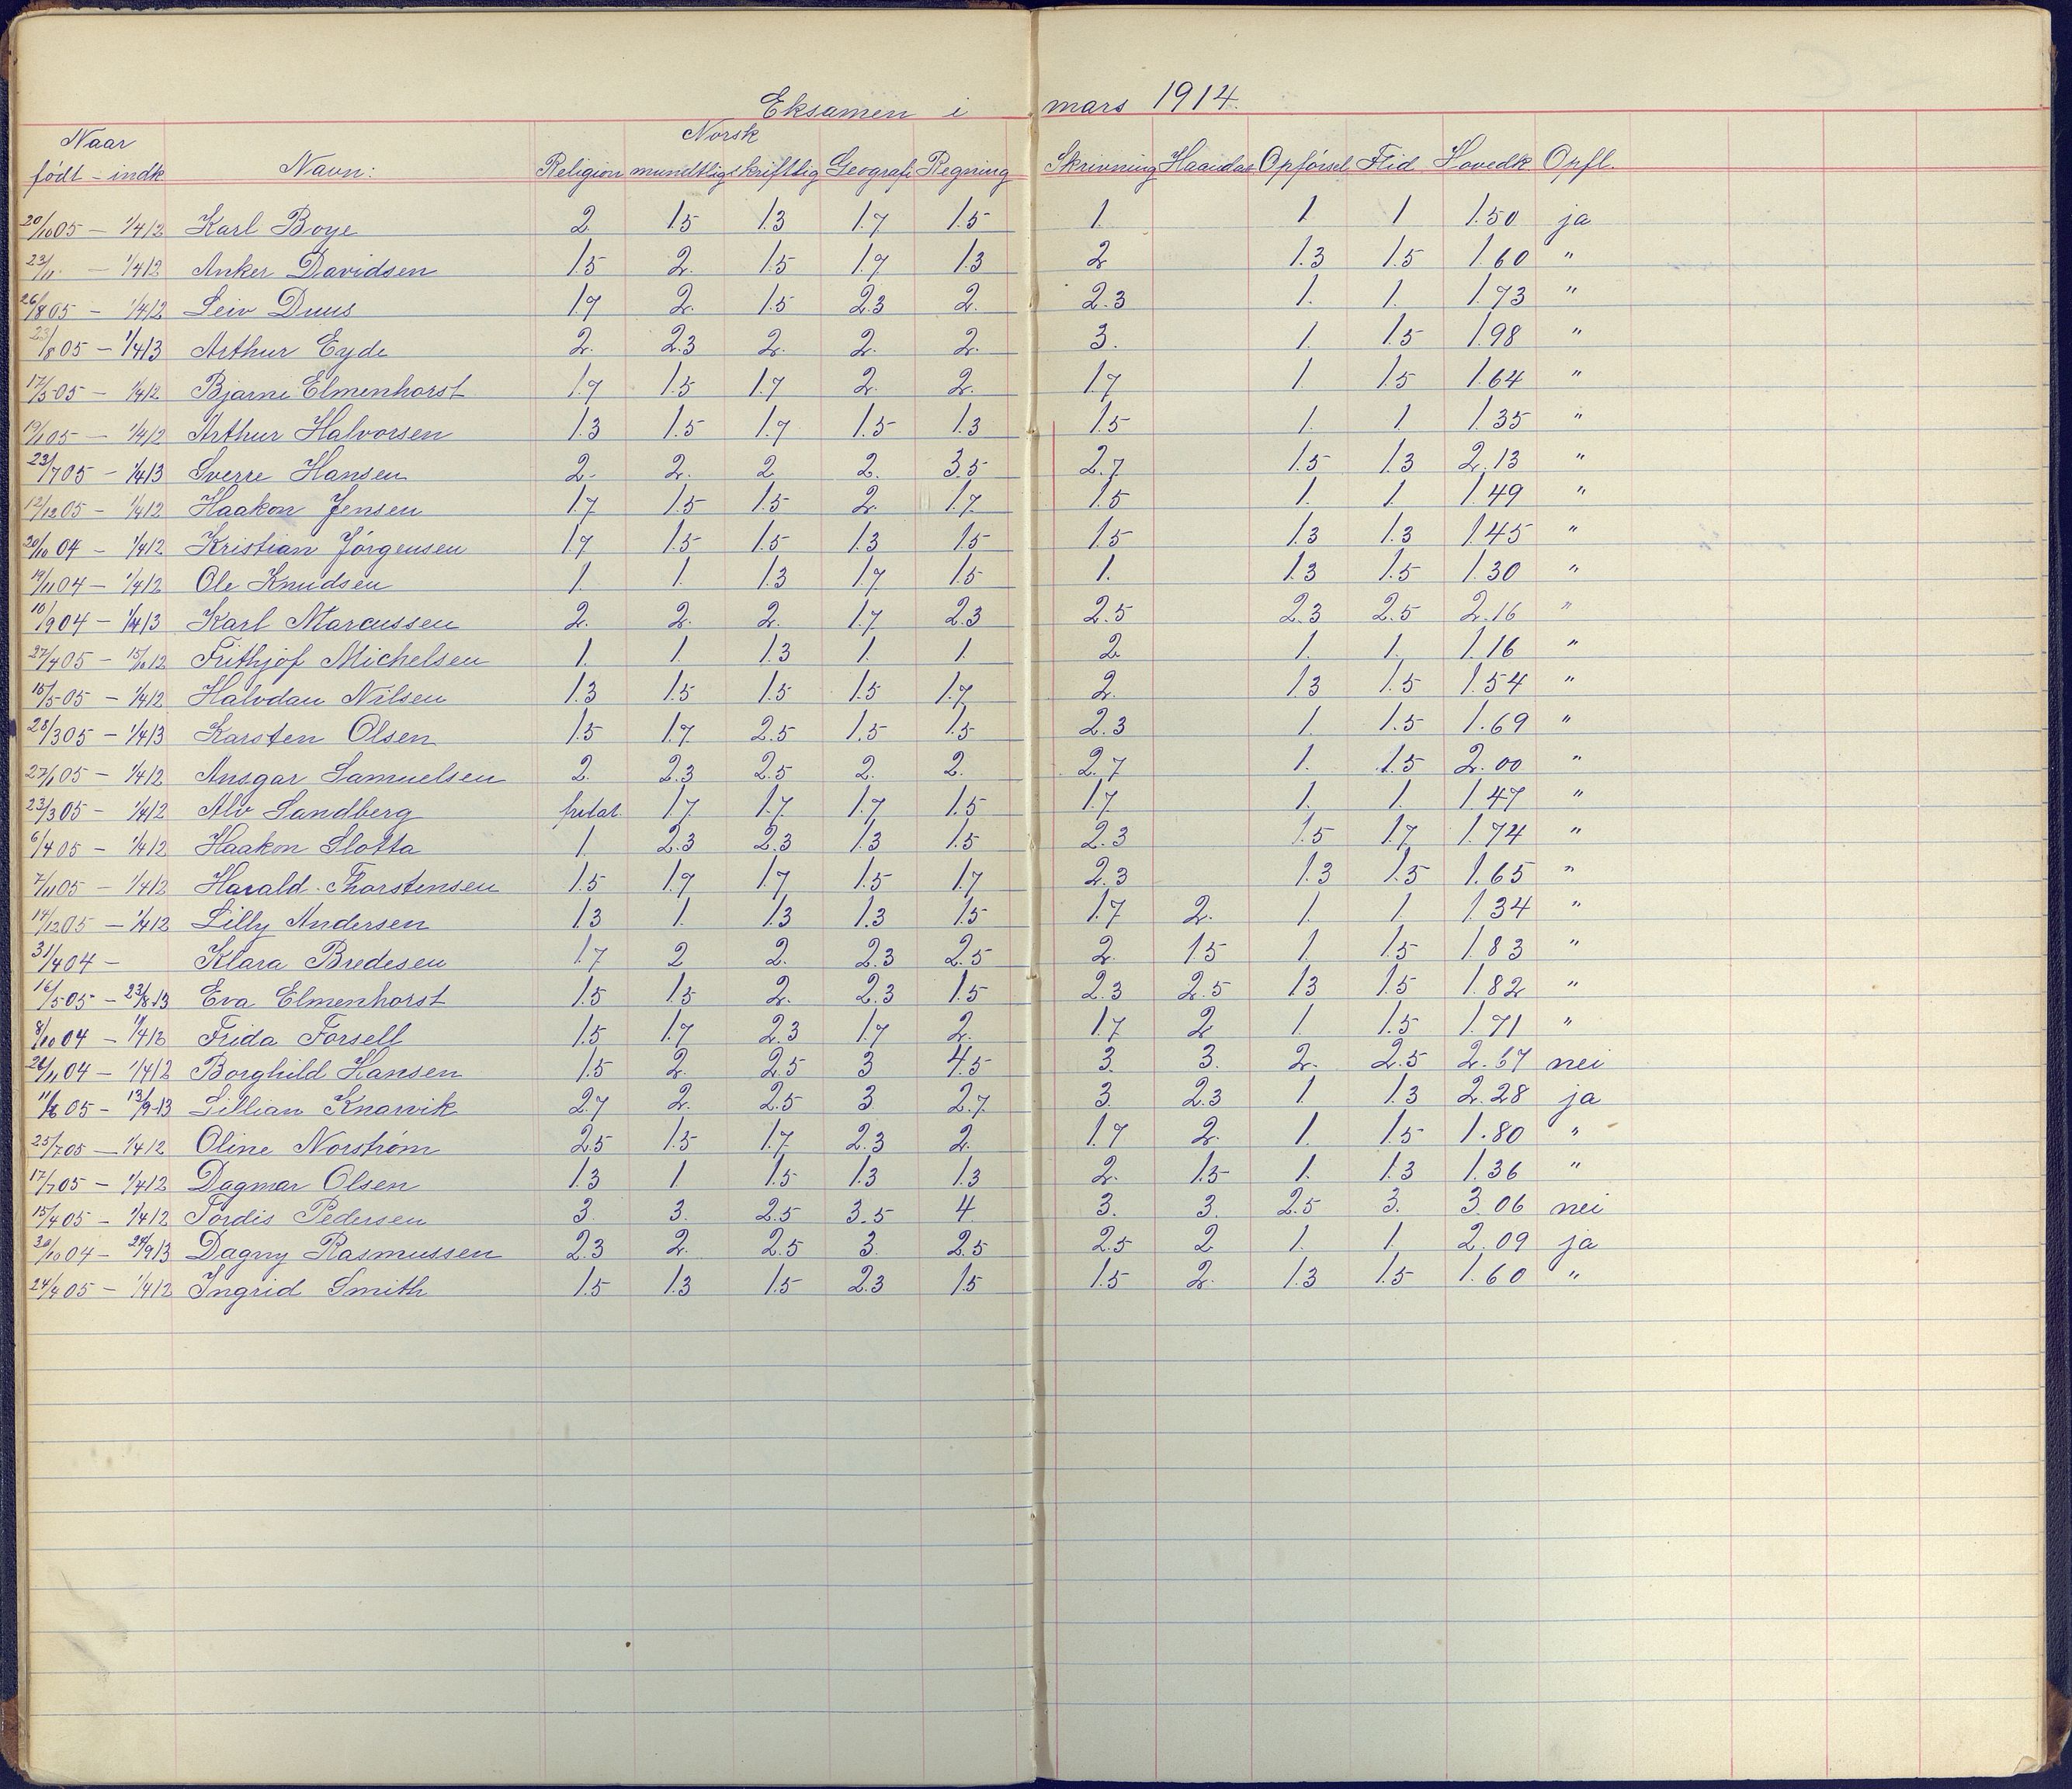 Eksamen i mars 1914.
Naar Norsk
født - indk Navn: Religion mundtlig skriftlig Geografi Regning Skrivning Haandar Opførsel Flid Hovedk. Opfl.
20/10 05 - 1/4 12 Karl Boye 2. 1.5 1.3 1.7 1.5 1. 1. 1 1.50 ja
23/11. - 1/4 12 Anker Davidsen 1.5 2. 1.5 1.7 1.3 2 1.3 1.5 1.60 "
26/8 05 - 1/4 12 Leiv Duus 1.7 2. 1.5 2.3 2. 2.3 1. 1. 1.73 "
23/8 05 - 1/4 13 Arthur Eyde 2. 2.3 2. 2. 2. 3. 1. 1.5 1.98 "
17/5 05 - 1/4 12 Bjarne Elmenhorst 1.7 1.5 1.7 2. 2. 1.7 1. 1.5 1.64 "
19/1 05 - 1/4 12 Arthur Halvorsen 1.3 1.5 1.7 1.5 1.3 1.5 1. 1 1.35 "
23/7 05 - 1/4 13 Sverre Hansen 2. 2. 2 2. 3.5 2.7 1.5 1.3 2.13 "
12/12 05 - 1/4 12 Haakon Jensen 1.7 1.5 1.5 2. 1.7 1.5 1. 1 1.49 "
20/10 04 - 1/4 12 Kristian Jörgensen 1.7 1.5 1.5 1.3 1.5 1.5 1.3 1.3 1.45 "
19/11 04 - 1/4 12 Ole Knudsen 1. 1. 1.3 1.7 1.5 1. 1.3 1.5 1.30 "
10/9 04 - 1/4 13 Karl Marcussen 2. 2. 2. 1.7 2.3 2.5 2.3 2.5 2.16 "
27/4 05 - 15/6 12 Frithjof Michelsen 1. 1. 1.3 1. 1. 2 1. 1. 1.16 "
15/5 05 - 1/4 12 Halvdan Nilsen 1.3 1.5 1.5 1.5 1.7 2. 1.3 1.5 1.54 "
28/3 05 - 1/4 13 Karsten Olsen 1.5 1.7 2.5 1.5 1.5 2.3 1. 1.5 1.69 "
27/1 05 - 1/4 12 Ansgar Samuelsen 2. 2.3 2.5 2. 2. 2.7 1. 1.5 2.00 "
23/3 05 - 1/4 12 Alv Sandberg fritat. 1.7 1.7 1.7 1.5 1.7 1. 1. 1.47 "
6/4 05 - 1/4 12 Haakon Slotta 1. 2.3 2.3 1.3 1.5 2.3 1.5 1.7 1.74 "
7/11 05 - 1/4 12 Harald Thorstensen 1.5 1.7 1.7 1.5 1.7 2.3 1.3 1.5 1.65 "
14/12 05 - 1/4 12 Lilly Andersen 1.3 1. 1.3 1.3 1.5 1.7 2. 1. 1. 1.34 "
31/4 04 - Klara Bredesen 1.7 2 2. 2.3 2.5 2. 1.5 1. 1.5 1.83 "
16/5 05 - 23/8 13 Eva Elmenhorst 1.5 1.5 2. 2.3 1.5 2.3 2.5 1.3 1.5 1.82 "
8/10 04 - Frida Forsell 1.5 1.7 2.3 1.7 2. 1.7 2 1. 1.5 1.71 "
26/11 04 - 1/4 12 Borghild Hansen 1.5 2. 2.5 3 4.5 3. 3. 2. 2.5 2.67 nei
11/6 05 - 13/9 13 Lillian Knarvik 2.7 2. 2.5 3 2.7 3. 2.3 1 1.3 2.28 ja
25/7 05 - 1/4 12 Oline Norström 2.5 1.5 1.7 2.3 2. 1.7 2. 1. 1.5 1.80 "
17/7 05 - 1/4 12 Dagmar Olsen 1.3 1 1.5 1.3 1.3 2. 1.5 1. 1.3 1.36 "
15/4 05 - 1/4 12 Tordis Pedersen 3. 3. 2.5 3.5 4. 3. 3. 2.5 3. 3.06 nei
30/10 04 - 24/9 13 Dagny Rasmussen 2.3 2. 2.5 3. 2.5 2.5 2 1. 1. 2.09 ja
24/4 05 - 1/4 12 Ingrid Smith 1.5 1.3 1.5 2.3 1.5 1.5 2. 1.3 1.5 1.60 "